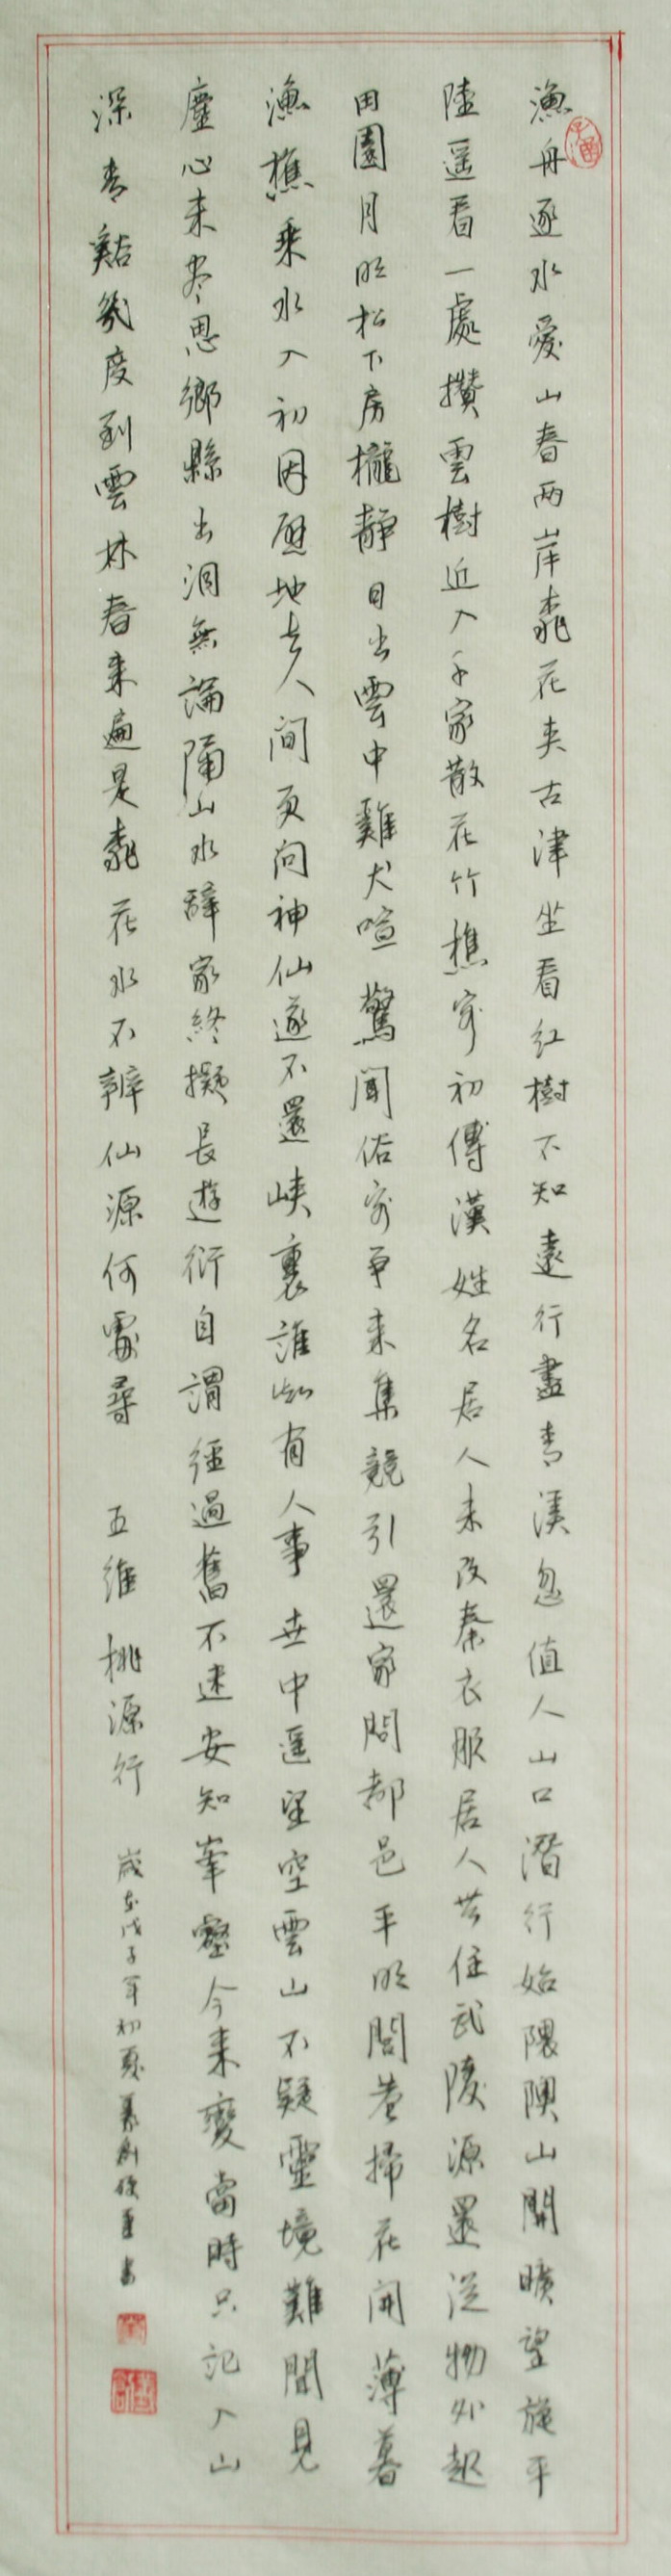 漁舟逐水愛山春兩岸桃花夾古津坐看紅樹不知遠行盡青溪忽值人山口潛行始隈隩山開曠望旋平
陸遥看一處攢雲樹近入千家散花竹樵客初傳漢姓名居人未改秦衣服居人共住武陵源還從物外起
田園月明松下房櫳靜日出雲中雞犬喧驚聞俗客爭來集競引還家問都邑平明閭巷掃花開薄暮
漁樵乘水入初因避地去人間更問神仙遂不還峽裏誰知有人事世中遥望空雲山不疑靈境難聞見
塵心未盡思鄉縣出洞無論隔山水辭家終擬長遊衍自謂經過舊不迷安知峯壑今來變當時只記入山
深青谿幾度到雲林春來遍是桃花水不辨仙源何處尋 王維 桃源行 歲在戊子年初夏